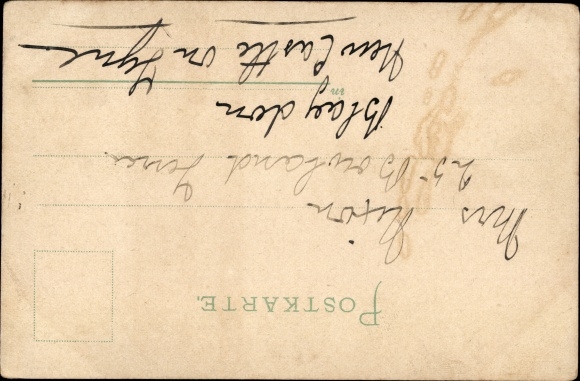 POSTKARTE.
Mrs Nixon
25 Rowland Terrace
Blaydon
in
New Castle on Tyne